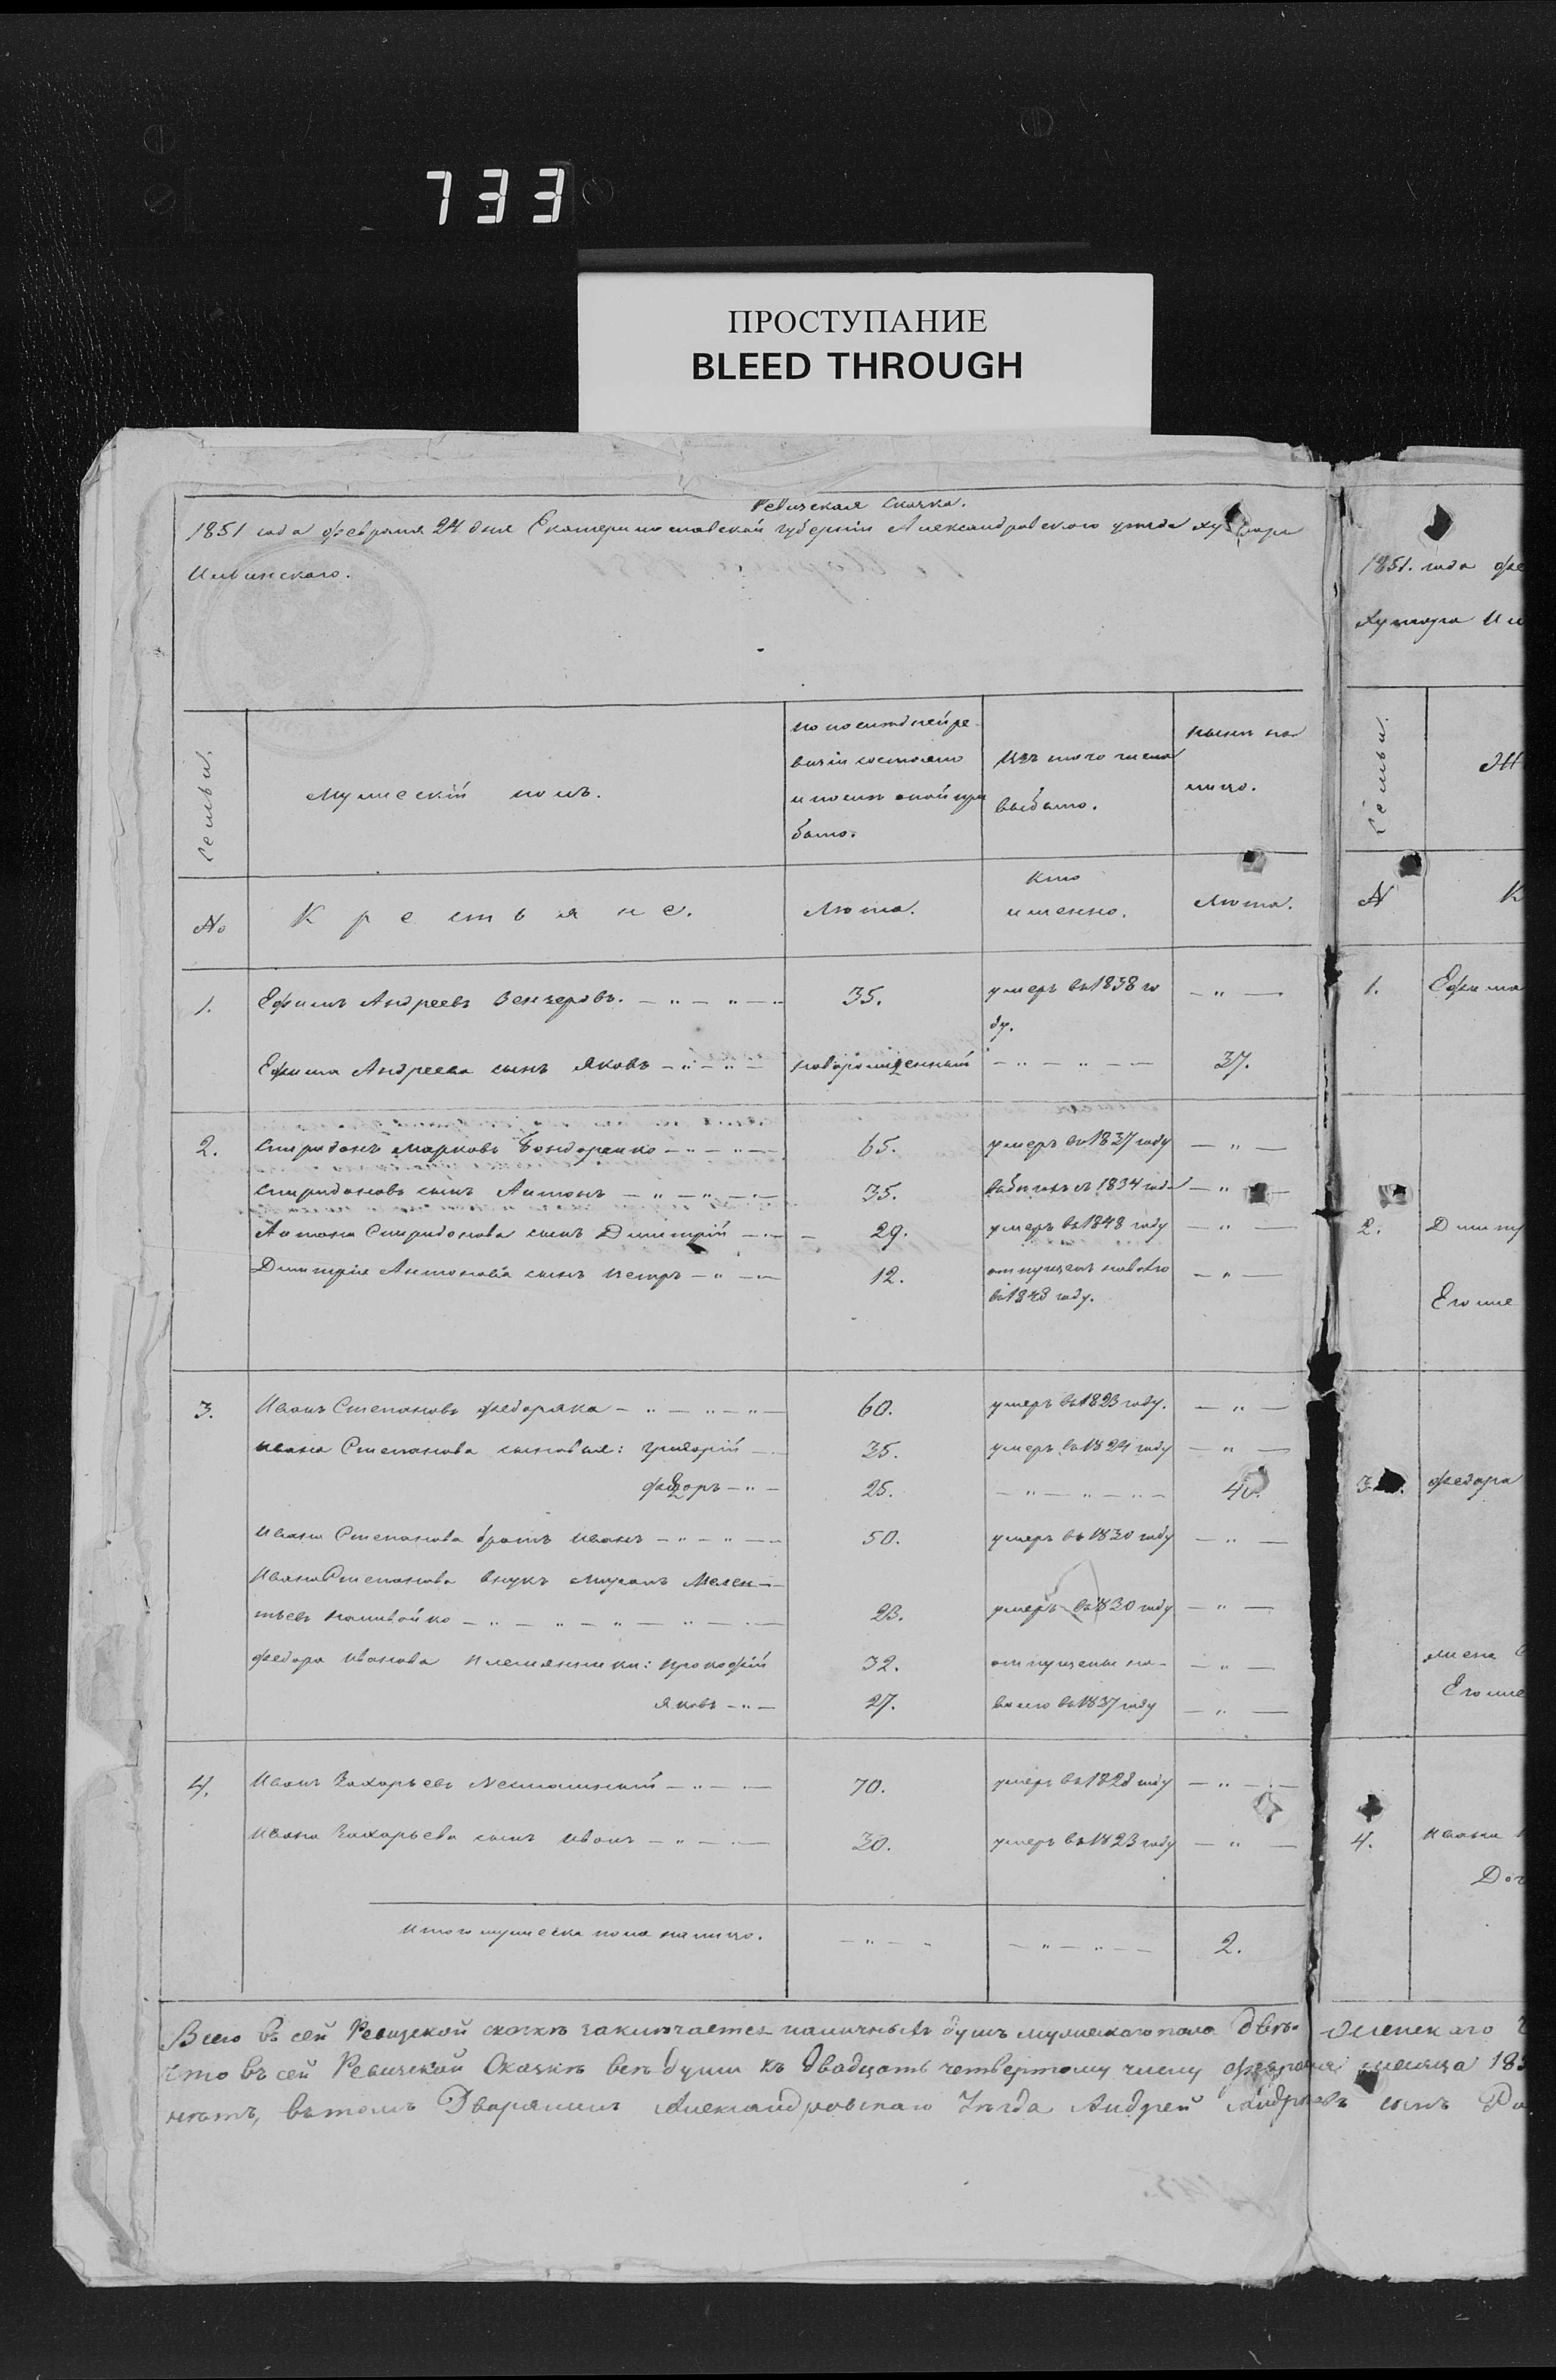 733
ПРОСТУПАНИЕ
BLEED THROUGH
Ревизская Сказка.
1851 года февраля 24 дня Екатеринославской губернiи Александровского уезда хутора
Ильинскаго.
Семьи.
Мужескiй полъ.
по последней ре
визiи состояло
и после оной при
было.
Изъ того числа
выбыло.
ныне на
лицо.
№
Крестьяне.
Лета.
Кто
именно.
Лета.
1. Ефимъ Андреевъ Венгеровъ. — " — " — 35. умеръ въ 1838 го — " —
ду.
Ефима Андреева сынъ Яковъ — " — " — новорожденный — " — " — — 37.
2. Спиридонъ Марковъ Бондаренко — " — " — 65. умеръ въ 1837 году — " —
Спиридоновъ сынъ Антонъ — " — " — 35. въ бегахъ съ 1834 года — " —
Антона Спиридонова сынъ Дмитрiй — 29. умеръ въ 1848 году — " —
Дмитрiя Антонова сынъ Петръ — " — 12. отпущенъ на волю — " —
въ 1848 году.
3. Иванъ Степановъ Федоряка — " — " — " — 60. умеръ въ 1823 году. — " —
Ивана Степанова сыновья: Григорiй — 35. умеръ въ 1824 году — " —
Федоръ — " — 25. — " — " — " — 40.
Ивана Степанова братъ Иванъ — " — " — 50. умеръ въ 1830 году — " —
Ивана Степанова внукъ Миронъ Мелен—
тьевъ Наливайко — " — " — " — " — 23. умеръ въ 1830 году — " —
Федора Иванова племянники: Прокофiй 32. отпущены на— — " —
Яковъ — " — 27. волю въ 1837 году — " —
4. Иванъ Захарьевъ — " — 70. умеръ въ 1828 году — " —
Ивана Захарьева сынъ Иванъ — " — 30. умеръ въ 1823 году — " —
Итого мужеска пола налицо. — " — — " — " — 2.
Всего въ сей Ревизской сказке заключается наличныхъ душъ мужескаго пола две.
что въ сей Ревизской Сказке все души къ двадцать четвертому числу февраля месяца 185
нетъ, въ томъ Дворянинъ Александровскаго Уезда Андрей Андреевъ сынъ
1851. года фе
Хутора Ил
Семьи.
Ж
№
К
1. Ефима
2. Дмитр
Его же
3. Федора
жена
Его же
4. Ивана
Доч
женскаго